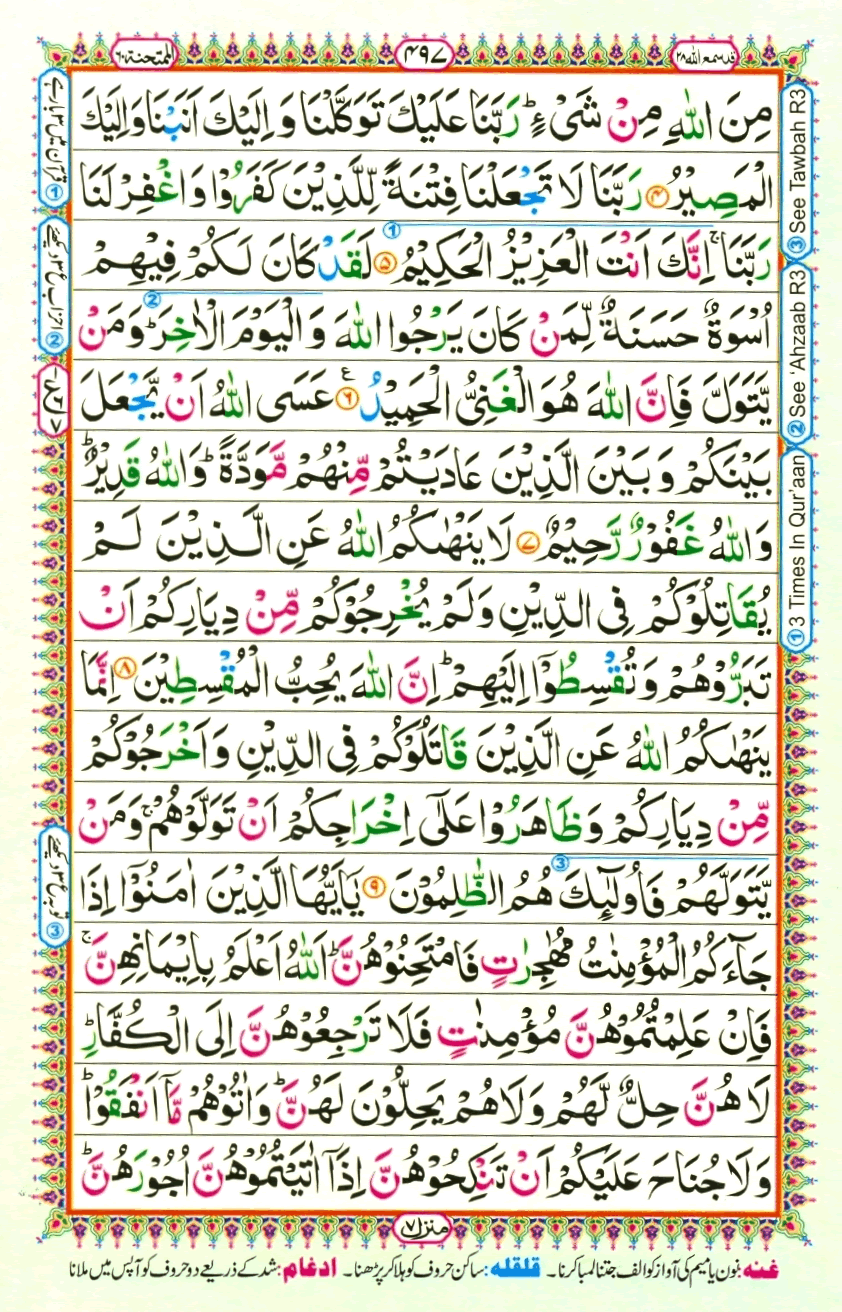 قد سمع الله ٢٨
٤٩٧
الممتحنة ٦٠
مِنَ اللّٰهِ مِنْ شَیْءٍ ؕ رَبَّنَا عَلَیْكَ تَوَكَّلْنَا وَ اِلَیْكَ اَنَبْنَا وَ اِلَیْكَ
الْمَصِیْرُ ﴿۴﴾ رَبَّنَا لَا تَجْعَلْنَا فِتْنَةً لِّلَّذِیْنَ كَفَرُوْا وَ اغْفِرْ لَنَا
رَبَّنَا ۚ اِنَّكَ اَنْتَ الْعَزِیْزُ الْحَكِیْمُ ﴿۵﴾ لَقَدْ كَانَ لَكُمْ فِیْهِمْ
اُسْوَةٌ حَسَنَةٌ لِّمَنْ كَانَ یَرْجُوا اللّٰهَ وَ الْیَوْمَ الْاٰخِرَ ؕ وَ مَنْ
یَّتَوَلَّ فَاِنَّ اللّٰهَ هُوَ الْغَنِیُّ الْحَمِیْدُ ﴿۶﴾ ع عَسَی اللّٰهُ اَنْ یَّجْعَلَ
بَیْنَكُمْ وَ بَیْنَ الَّذِیْنَ عَادَیْتُمْ مِّنْهُمْ مَّوَدَّةً ؕ وَ اللّٰهُ قَدِیْرٌ ؕ
وَ اللّٰهُ غَفُوْرٌ رَّحِیْمٌ ﴿۷﴾ لَا یَنْهٰىكُمُ اللّٰهُ عَنِ الَّذِیْنَ لَمْ
یُقَاتِلُوْكُمْ فِی الدِّیْنِ وَ لَمْ یُخْرِجُوْكُمْ مِّنْ دِیَارِكُمْ اَنْ
تَبَرُّوْهُمْ وَ تُقْسِطُوْۤا اِلَیْهِمْ ؕ اِنَّ اللّٰهَ یُحِبُّ الْمُقْسِطِیْنَ ﴿۸﴾ اِنَّمَا
یَنْهٰىكُمُ اللّٰهُ عَنِ الَّذِیْنَ قَاتَلُوْكُمْ فِی الدِّیْنِ وَ اَخْرَجُوْكُمْ
مِّنْ دِیَارِكُمْ وَ ظَاهَرُوْا عَلٰۤی اِخْرَاجِكُمْ اَنْ تَوَلَّوْهُمْ ۚ وَ مَنْ
یَّتَوَلَّهُمْ فَاُولٰٓىِٕكَ هُمُ الظّٰلِمُوْنَ ﴿۹﴾ یٰۤاَیُّهَا الَّذِیْنَ اٰمَنُوْۤا اِذَا
جَآءَكُمُ الْمُؤْمِنٰتُ مُهٰجِرٰتٍ فَامْتَحِنُوْهُنَّ ؕ اَللّٰهُ اَعْلَمُ بِاِیْمَانِهِنَّ ۚ
فَاِنْ عَلِمْتُمُوْهُنَّ مُؤْمِنٰتٍ فَلَا تَرْجِعُوْهُنَّ اِلَی الْكُفَّارِ ؕ
لَا هُنَّ حِلٌّ لَّهُمْ وَ لَا هُمْ یَحِلُّوْنَ لَهُنَّ ؕ وَ اٰتُوْهُمْ مَّاۤ اَنْفَقُوْا ؕ
وَ لَا جُنَاحَ عَلَیْكُمْ اَنْ تَنْكِحُوْهُنَّ اِذَاۤ اٰتَیْتُمُوْهُنَّ اُجُوْرَهُنَّ ؕ
③ See Tawbah R3
② See 'Ahzaab R3
① 3 Times In Qur'aan
① قرآن میں ۳ بار ہے
② احزاب ع ۳ دیکھئے
③ توبہ ع ۳ دیکھئے
منزل ٧
غنه: نون یا میم کی آواز کو الف جتنا لمبا کرنا۔ قلقله: ساکن حروف کو ہلا کر پڑھنا۔ ادغام: شد کے ذریعے دو حروف کو آپس میں ملانا